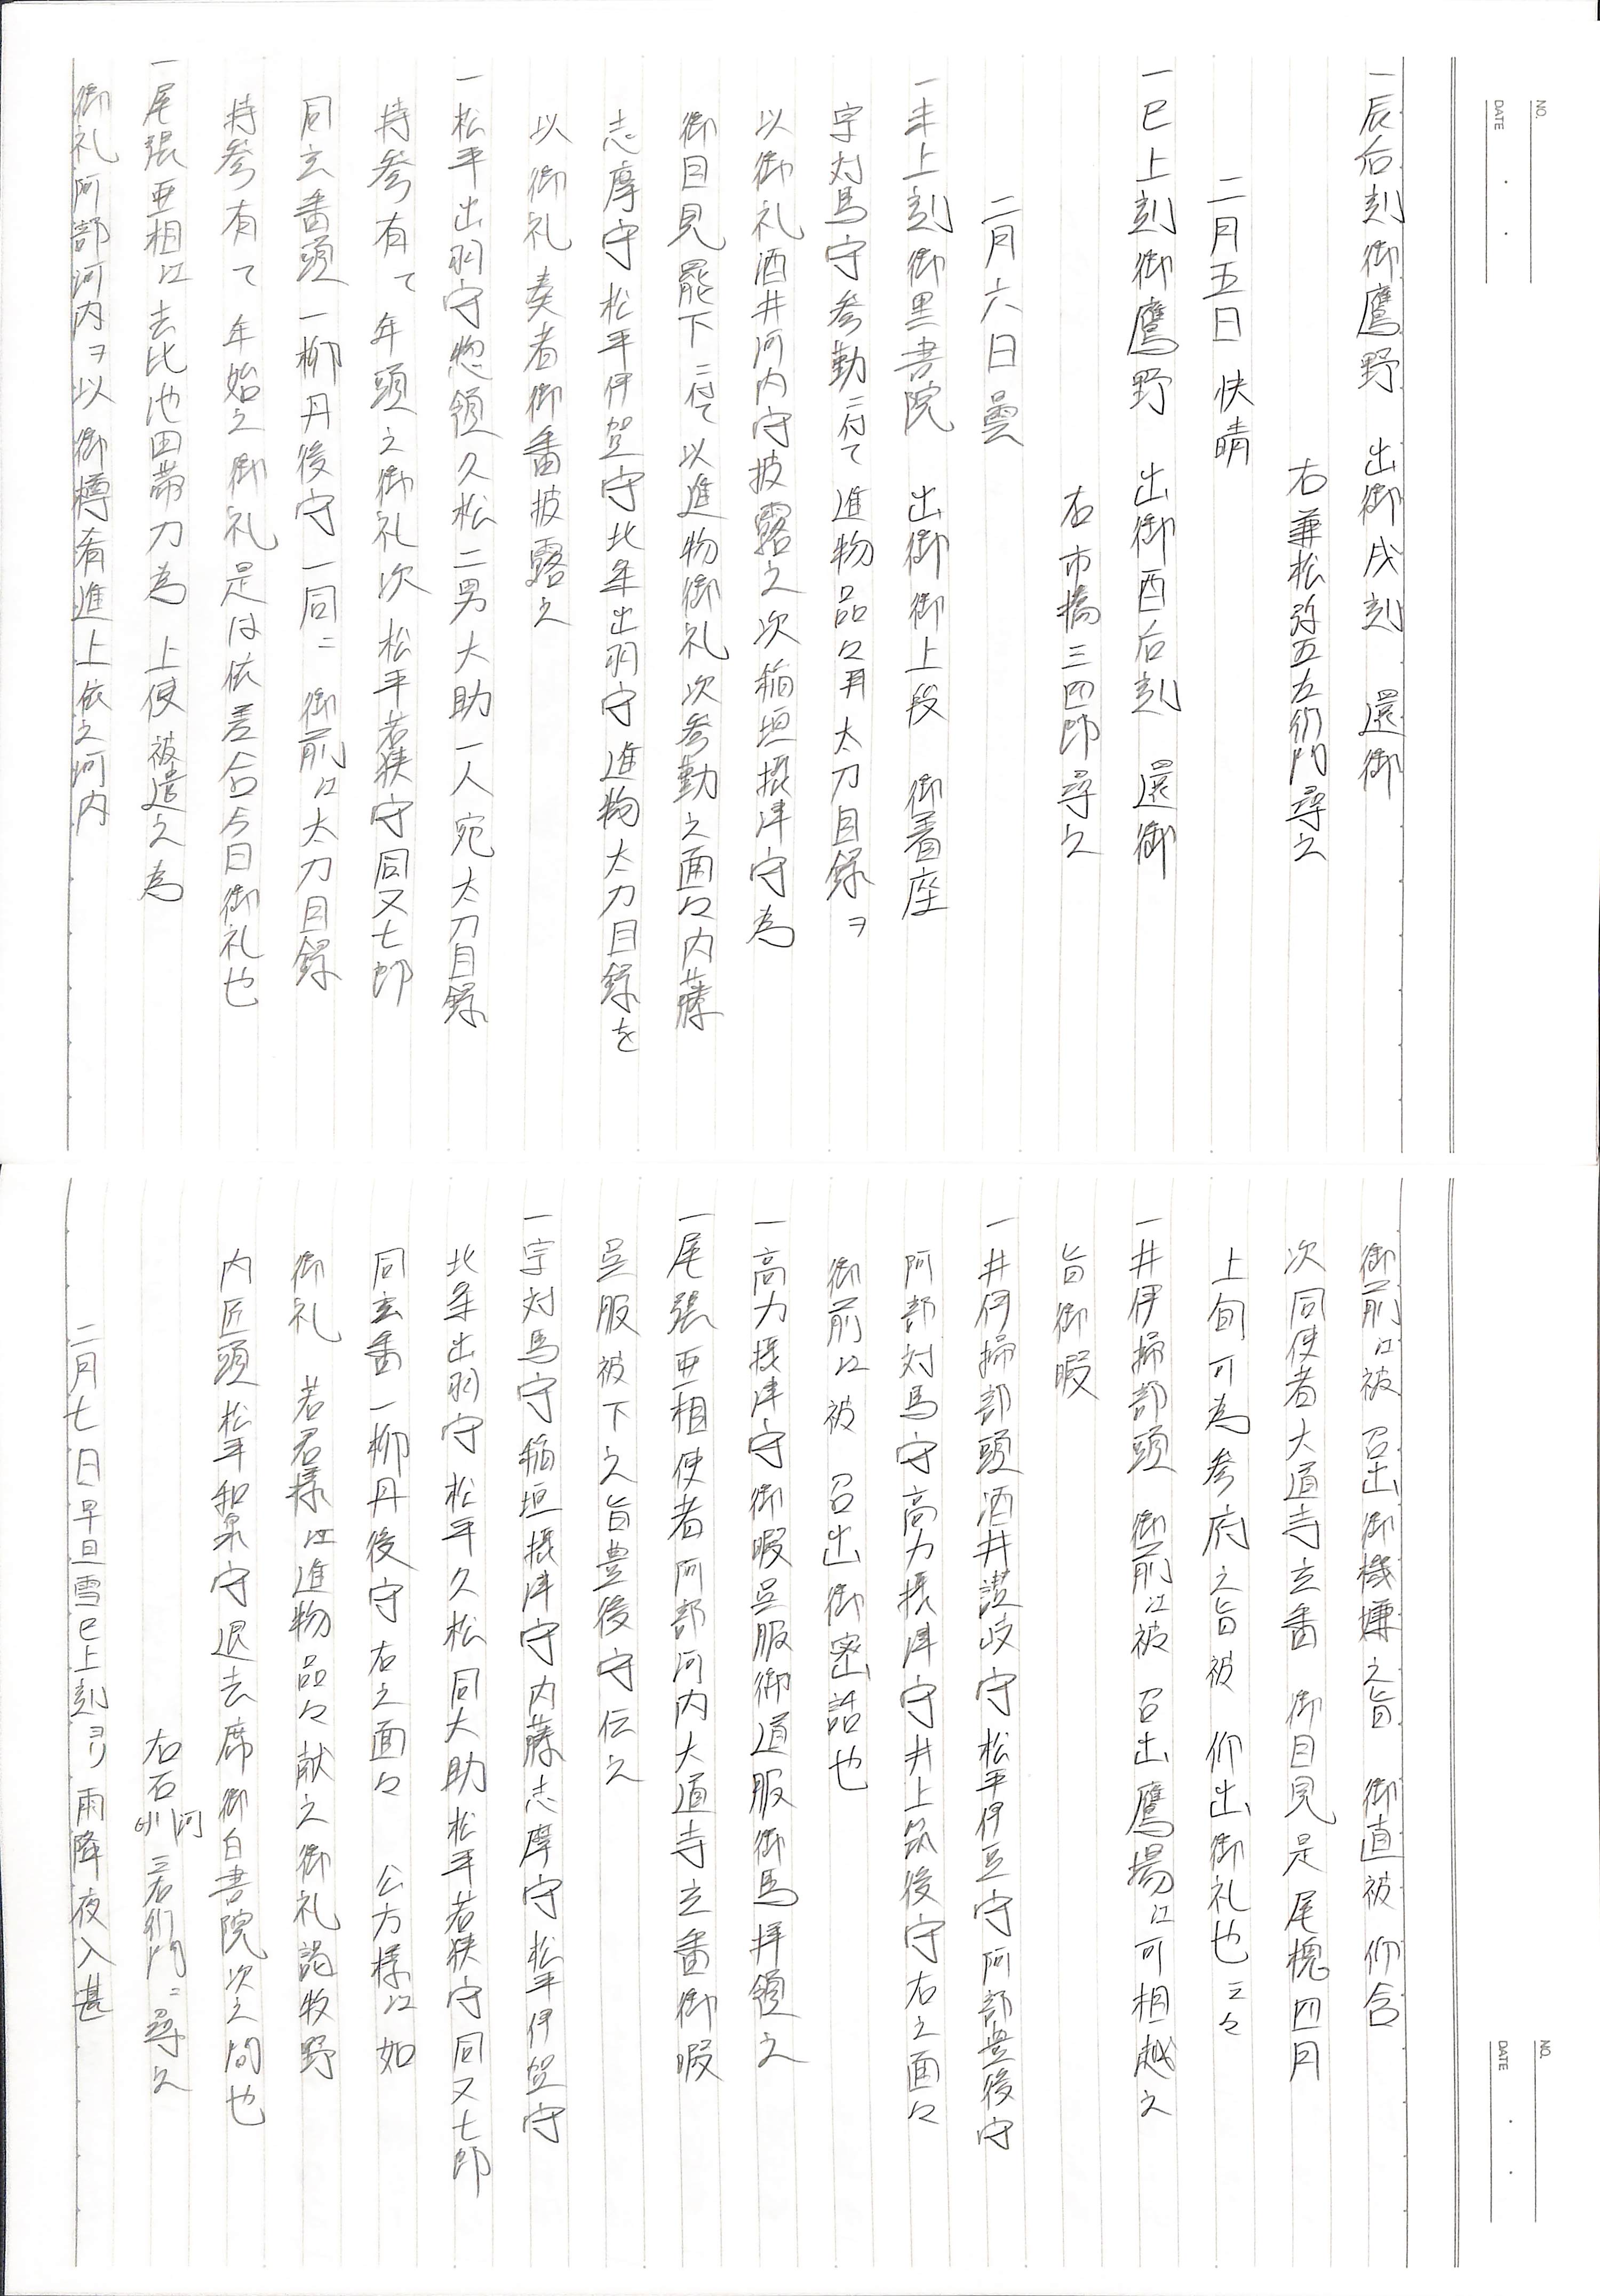 NO.
DATE
一辰后刻御鷹野　出御戌刻　還御
右兼松弥五左衛門尋之
二月五日　快晴
一巳上刻御鷹野　出御酉后刻　還御
右市橋三四郎尋之
二月六日曇
一未上刻御黒書院　出御御上段　御着座
宗対馬守参勤ニ付て進物品々并太刀目録ヲ
以御礼酒井河内守披露之次稲垣摂津守為
御目見罷下ニ付て以進物御礼次参勤之面々内藤
志摩守松平伊賀守北条出羽守進物太刀目録を
以　御礼奏者御番披露之
一松平出羽守惣領久松二男大助一人宛太刀目録
持参有て　年頭之御礼次松平若狭守同又七郎
同玄蕃頭一柳丹後守一同ニ　御前江太刀目録
持参有て　年始之御礼是は依差合今日御礼也
一尾張亜相江去比池田帯刀為　上使被遣之為
御礼阿部河内ヲ以御樽肴進上依之河内
NO.
DATE
御前江被　召出御機嫌之旨　御直被　仰含
次同使者大道寺玄蕃　御目見是尾槐四月
上旬可為参府之旨被　仰出御礼也云々
一井伊掃部頭　御前江被　召出鷹場江可相越之
旨御暇
一井伊掃部頭酒井讃岐守松平伊豆守阿部豊後守
阿部対馬守高力摂津守井上筑後守右之面々
御前江被　召出御密話也
一高力摂津守御暇呉服御道服御馬拝領之
一尾張亜相使者阿部河内大道寺玄蕃御暇
呉服被下之旨豊後守伝之
一宗対馬守稲垣摂津守内藤志摩守松平伊賀守
北条出羽守松平久松同大助松平若狭守同又七郎
同玄蕃一柳丹後守右之面々　公方様江如
御礼　若君様江進物品々献之御礼謁牧野
内匠頭松平和泉守退去席御白書院次之間也
右石川河三右衛門ニ尋之
二月七日早旦雪巳上刻ヨリ雨降夜入甚